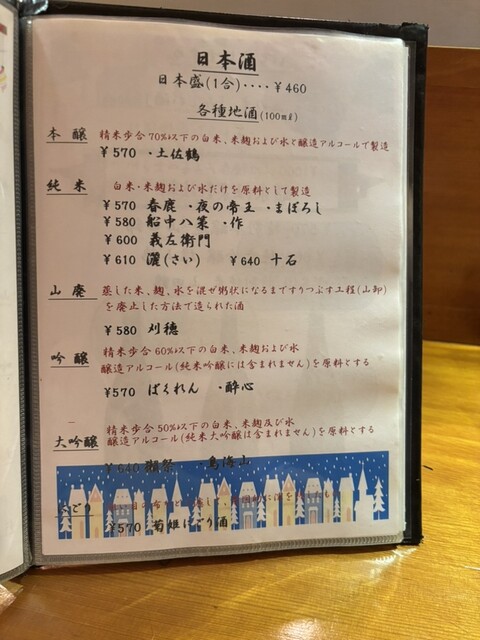 日本酒
日本盛(1合)‥‥¥460
各種地酒(100mℓ)
本 醸 精米歩合70%以下の白米、米麹および水と醸造アルコールで製造
¥570 ・土佐鶴
純 米 白米・米麹および水だけを原料として製造
¥570 春鹿 ・夜の帝王 ・まぼろし
¥580 船中八策 ・作
¥600 義左衛門
¥610 (さい) ¥640 十石
山 廃 蒸した米、麹、水を混ぜ粥状になるまですりつぶす工程(山卸)
を廃止した方法で造られた酒
¥580 刈穂
吟 醸 精米歩合60%以下の白米、米麹および水
醸造アルコール(純米吟醸には含まれません)を原料とする
¥570 ばくれん ・酔心
大吟醸 精米歩合50%以下の白米、米麹及び水
醸造アルコール(純米大吟醸は含まれません)を原料とする
¥640 獺祭 ・鳥海山
にごり
¥570 菊姫にごり酒